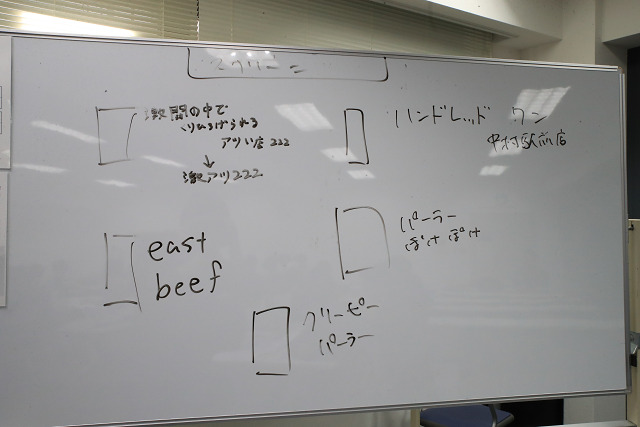 スクリーン
激闘の中で
くりひろげられる
アツい店 222
↓
激アツ222
ハンドレッド ワン
中村駅前店
east
beef
パーラー
ぽけぽけ
クリーピー
パーラー